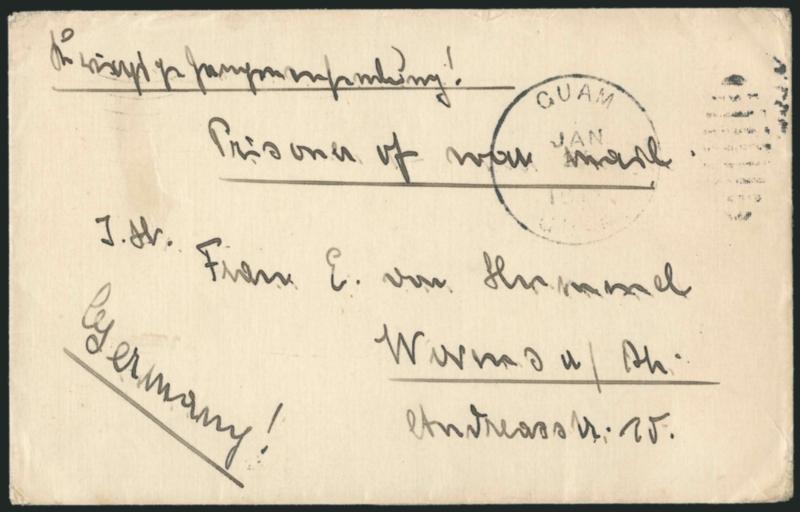 Kriegsgefangenensendung!
GUAM
JAN
Prisoner of war mail.
I. H.
Frau E. von Hummel
Worms a/Rh.
Germany!
Andreasstr. 15.